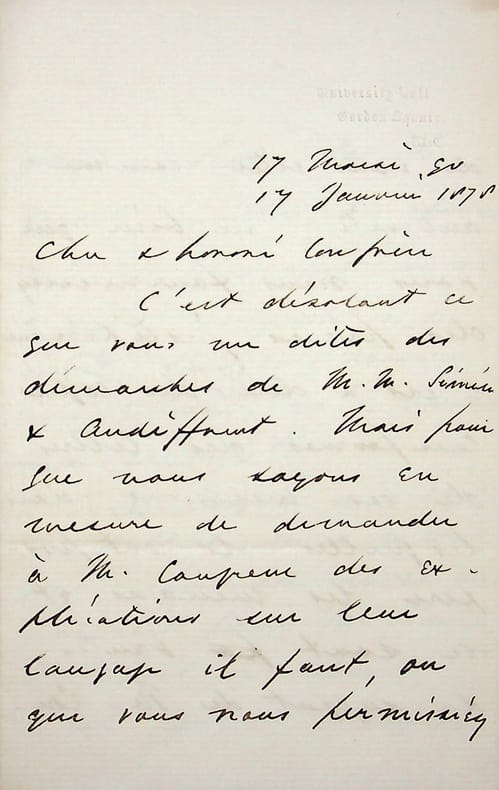 University Hall
Gordon Square
W.C.
17 Moïse, 90
17 Janvier 1878
Cher & honoré Confrère
C'est désolant ce
que vous me dites des
démarches de M.M. Sémérie
& Audiffrent. Mais pour
que nous soyons en
mesure de demander
à M. Congreve des ex-
plications sur leur
langage il faut, ou
que vous nous permissiez